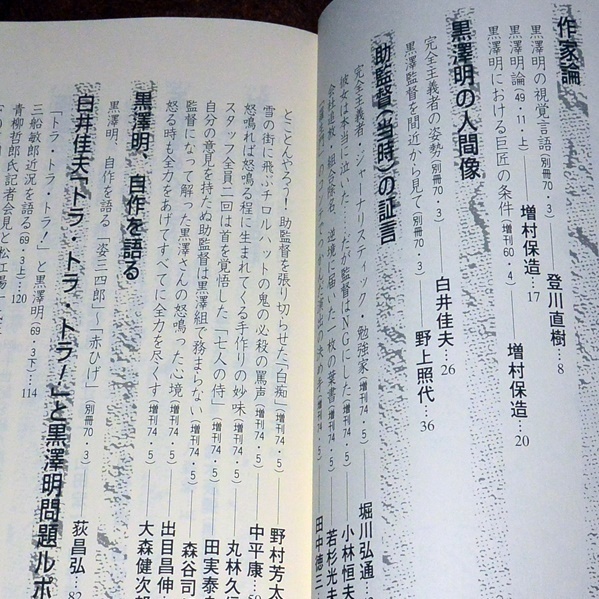 作家論
黒澤明の視覚言語(別冊70・3)——登川直樹…8
黒澤明論(49・11・上)——増村保造…17
黒澤明における巨匠の条件(増刊60・4)——増村保造…20
黒澤明の人間像
完全主義者の姿勢(別冊70・3)——白井佳夫…26
黒澤監督を間近から見て(別冊70・3)——野上照代…36
助監督(当時)の証言
完全主義者・ジャーナリスティック・勉強家(増刊74・5)——堀川弘通
彼女は本当に泣いた、だが監督はNGにした(増刊74・5)——小林恒夫
会社追放、組合除名、逆境に届いた一枚の葉書(増刊74・5)——若杉光夫
田中徳三
とことんやろう!助監督を張り切らせた「白痴」(増刊74・5)——野村芳太
雪の街に飛ぶチロルハットの鬼の必殺の罵声(増刊74・5)——中平康…50
怒鳴れば怒鳴る程に生まれてくる手作りの妙味(増刊74・5)——丸林久
スタッフ全員二回は首を覚悟した「七人の侍」(増刊74・5)——田実泰
自分の意見を持たぬ助監督は黒澤組で務まらない(増刊74・5)——森谷司
監督になって解った黒澤さんの怒鳴った心境(増刊74・5)——出目昌伸
怒る時も全力をあげてすべてに全力を尽くす(増刊74・5)——大森健次郎
黒澤明、自作を語る
黒澤明、自作を語る「姿三四郎」—「赤ひげ」(別冊70・3)——荻昌弘…82
白井佳夫「トラ・トラ・トラ!」と黒澤明問題ルポ
「トラ・トラ・トラ!」と黒澤明(69・3下)…114
三船敏郎近況を語る(69・3上)…120
青柳哲郎氏記者会見と松江陽一